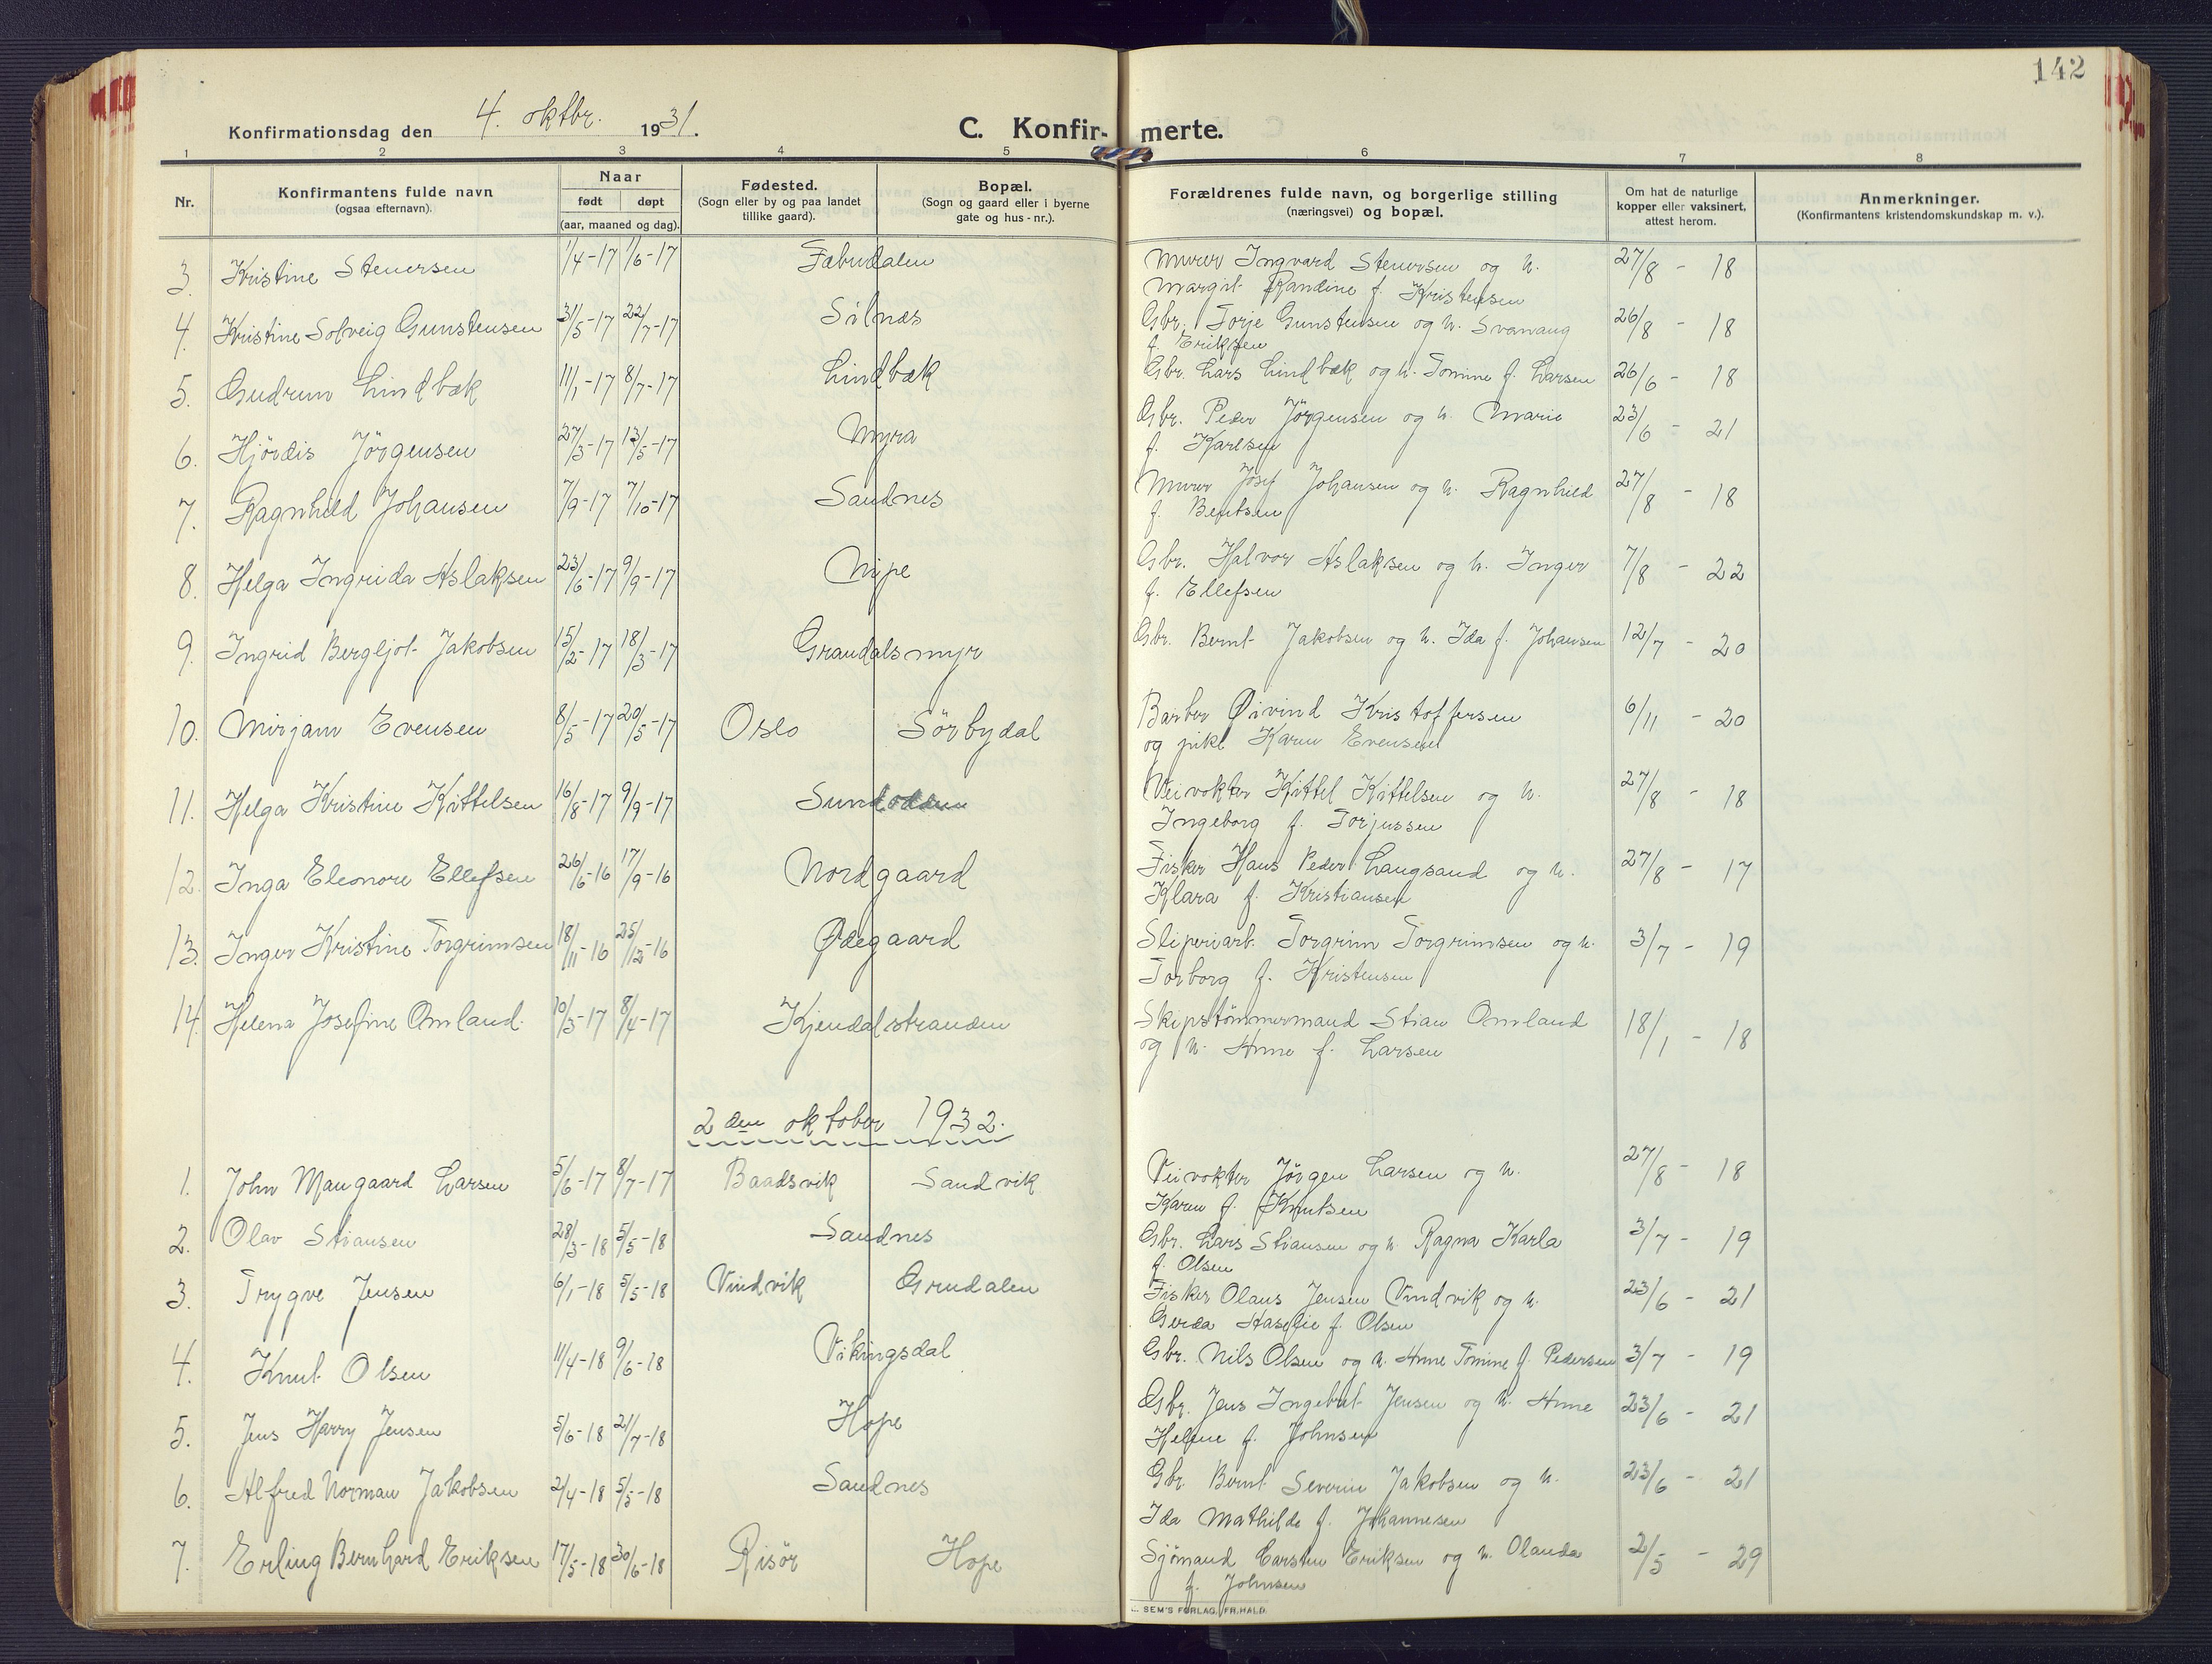 142
Konfirmationsdag den 4. oktbr. 1931.
C. Konfirmerte.
1 2 3 4 5 6 7 8
Nr.
Konfirmantens fulde navn
(ogsaa efternavn).
Naar
født døpt
(aar, maaned og dag).
Fødested.
(Sogn eller by og paa landet
tillike gaard).
Bopæl.
(Sogn og gaard eller i byerne
gate og hus-nr.).
Forældrenes fulde navn, og borgerlige stilling
(næringsvei) og bopæl.
Om hat de naturlige
kopper eller vaksinert,
attest herom.
Anmerkninger.
(Konfirmantens kristendomskundskap m. v.).
3. Kristine Stenersen 1/4-17 1/6-17 Murer Ingvard Stenersen og h. 27/8 - 18
Margit Randine f. Kristensen
4. Kristine Solveig Gunstensen 31/5-17 22/7-17 Silnæs Gbr. Torje Gunstensen og h. Svanaug 26/8 - 18
f. Eriksen
5. Gudrun Lindbæk 11/1-17 8/7-17 Lindbæk Gbr. Lars Lindbæk og h. Tomine f. Larsen 26/6 - 18
6. Hjördis Jörgensen 27/3-17 13/5-17 Myra Gbr. Peder Jörgensen og h. Marie 23/6 - 21
f. Karlsen
7. Ragnhild Johansen 7/9-17 7/10-17 Sandnes Murer Josef Johansen og h. Ragnhild 27/8 - 18
f. Bentsen
8. Helga Ingrida Aslaksen 23/6-17 9/9-17 Nipe Gbr. Halvor Aslaksen og h. Inger 7/8 - 22
f. Ellefsen
9. Ingrid Bergljot Jakobsen 15/2-17 18/3-17 Grandalsmyr Gbr. Bernt Jakobsen og h. Ida f. Johansen 12/7 - 20
10. Mirjam Evensen 8/5-17 20/5-17 Oslo Sörbydal Barber Øivind Kristoffersen 6/11 - 20
og pike Karen Evensen
11. Helga Kristine Kittelsen 16/8-17 9/9-17 Sundodden Veivokter Kittel Kittelsen og h. 27/8 - 18
Ingeborg f. Torjussen
12. Inga Eleonore Ellefsen 26/6-16 17/9-16 Nordgaard Fisker Hans Peder Langsand og h. 27/8 - 17
Klara f. Kristiansen
13. Inger Kristine Torgrimsen 18/11-16 25/12-16 Ødegaard Sliperiarb. Torgrim Torgrimsen og h. 3/7 - 19
Torborg f. Kristensen
14. Helena Josefine Omland. 10/3-17 8/4-17 Kjendalstranden Skipstömmermand Stian Omland 18/1 - 18
og h. Anne f. Larsen
2den oktober 1932.
1. John Maugaard Larsen 5/6-17 8/7-17 Baadsvik Sandvik Veivokter Jörgen Larsen og h. 27/8 - 18
Karen f. Knutsen
2. Olav Stiansen 28/3-18 5/5-18 Sandnes Gbr. Lars Stiansen og h. Ragna Karla 3/7 - 19
f. Olsen
3. Trygve Jensen 6/1-18 5/5-18 Vindvik Grndalen Fisker Olaus Jensen Vindvik og h. 23/6 - 21
Gerda f. Olsen
4. Knut Olsen 11/4-18 9/6-18 Vikingsdal Gbr. Nils Olsen og h. Anne Tomine f. Pedersen 3/7 - 19
5. Jens Harry Jensen 5/6-18 21/7-18 Hope Gbr. Jens Ingebret Jensen og h. Anne 23/6 - 21
Helene f. Johnsen
6. Alfred Norman Jakobsen 2/4-18 5/5-18 Sandnes Gbr. Bernt Severin Jakobsen og h. 23/6 - 21
Ida Mathilde f. Johannesen
7. Erling Bernhard Eriksen 17/5-18 30/6-18 Risör Hope Sjömand Carsten Eriksen og h. Olanda 2/5 - 29
f. Johnsen
SEM'S FORLAG, FR.HALD.